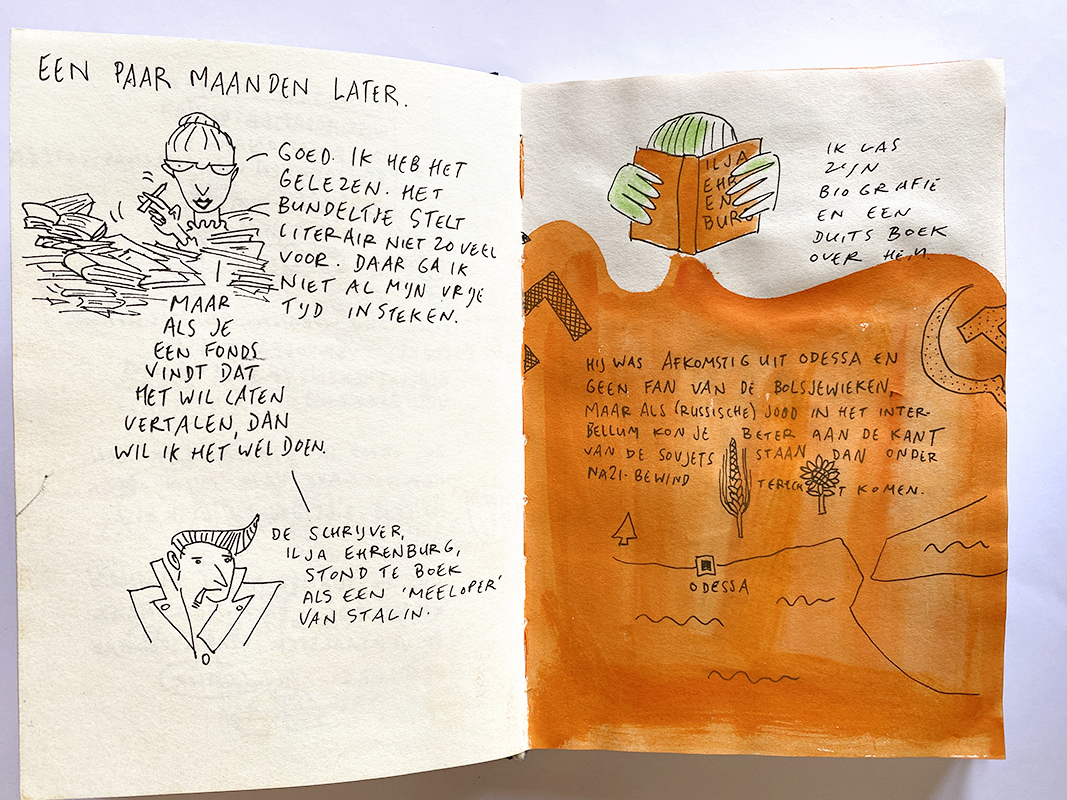 EEN PAAR MAANDEN LATER.
GOED. IK HEB HET
GELEZEN. HET
BUNDELTJE STELT
LITERAIR NIET ZO VEEL
VOOR. DAAR GA IK
NIET AL MIJN VRIJE
TIJD IN STEKEN.
MAAR
ALS JE
EEN FONDS
VINDT DAT
HET WIL LATEN
VERTALEN, DAN
WIL IK HET WEL DOEN.
DE SCHRIJVER,
ILJA EHRENBURG,
STOND TE BOEK
ALS EEN 'MEELOPER'
VAN STALIN.
ILJA
EHR
EN
BURG
IK LAS
ZIJN
BIOGRAFIE
EN EEN
DUITS BOEK
OVER HEM.
HIJ WAS AFKOMSTIG UIT ODESSA EN
GEEN FAN VAN DE BOLSJEWIEKEN,
MAAR ALS (RUSSISCHE) JOOD IN HET INTER-
BELLUM KON JE BETER AAN DE KANT
VAN DE SOVJETS STAAN DAN ONDER
NAZI-BEWIND TERECHT KOMEN.
ODESSA